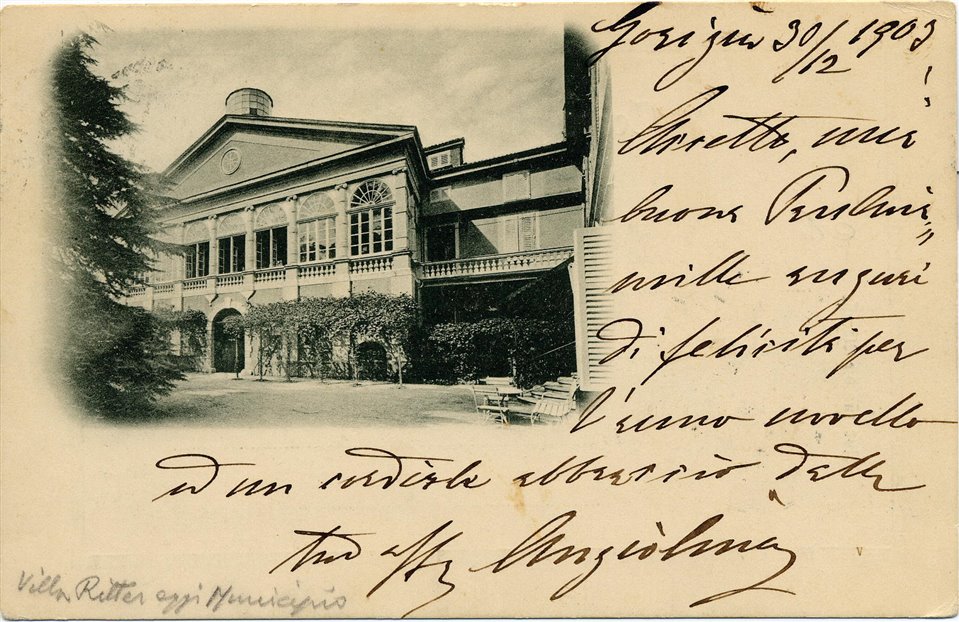 Gorizia 30/12 1903
mia
buona
mille auguri
di felicità per
l'anno novello
ed un cordiale abbraccio dalla
tua aff. Angiolina
Villa Ritter oggi Municipio